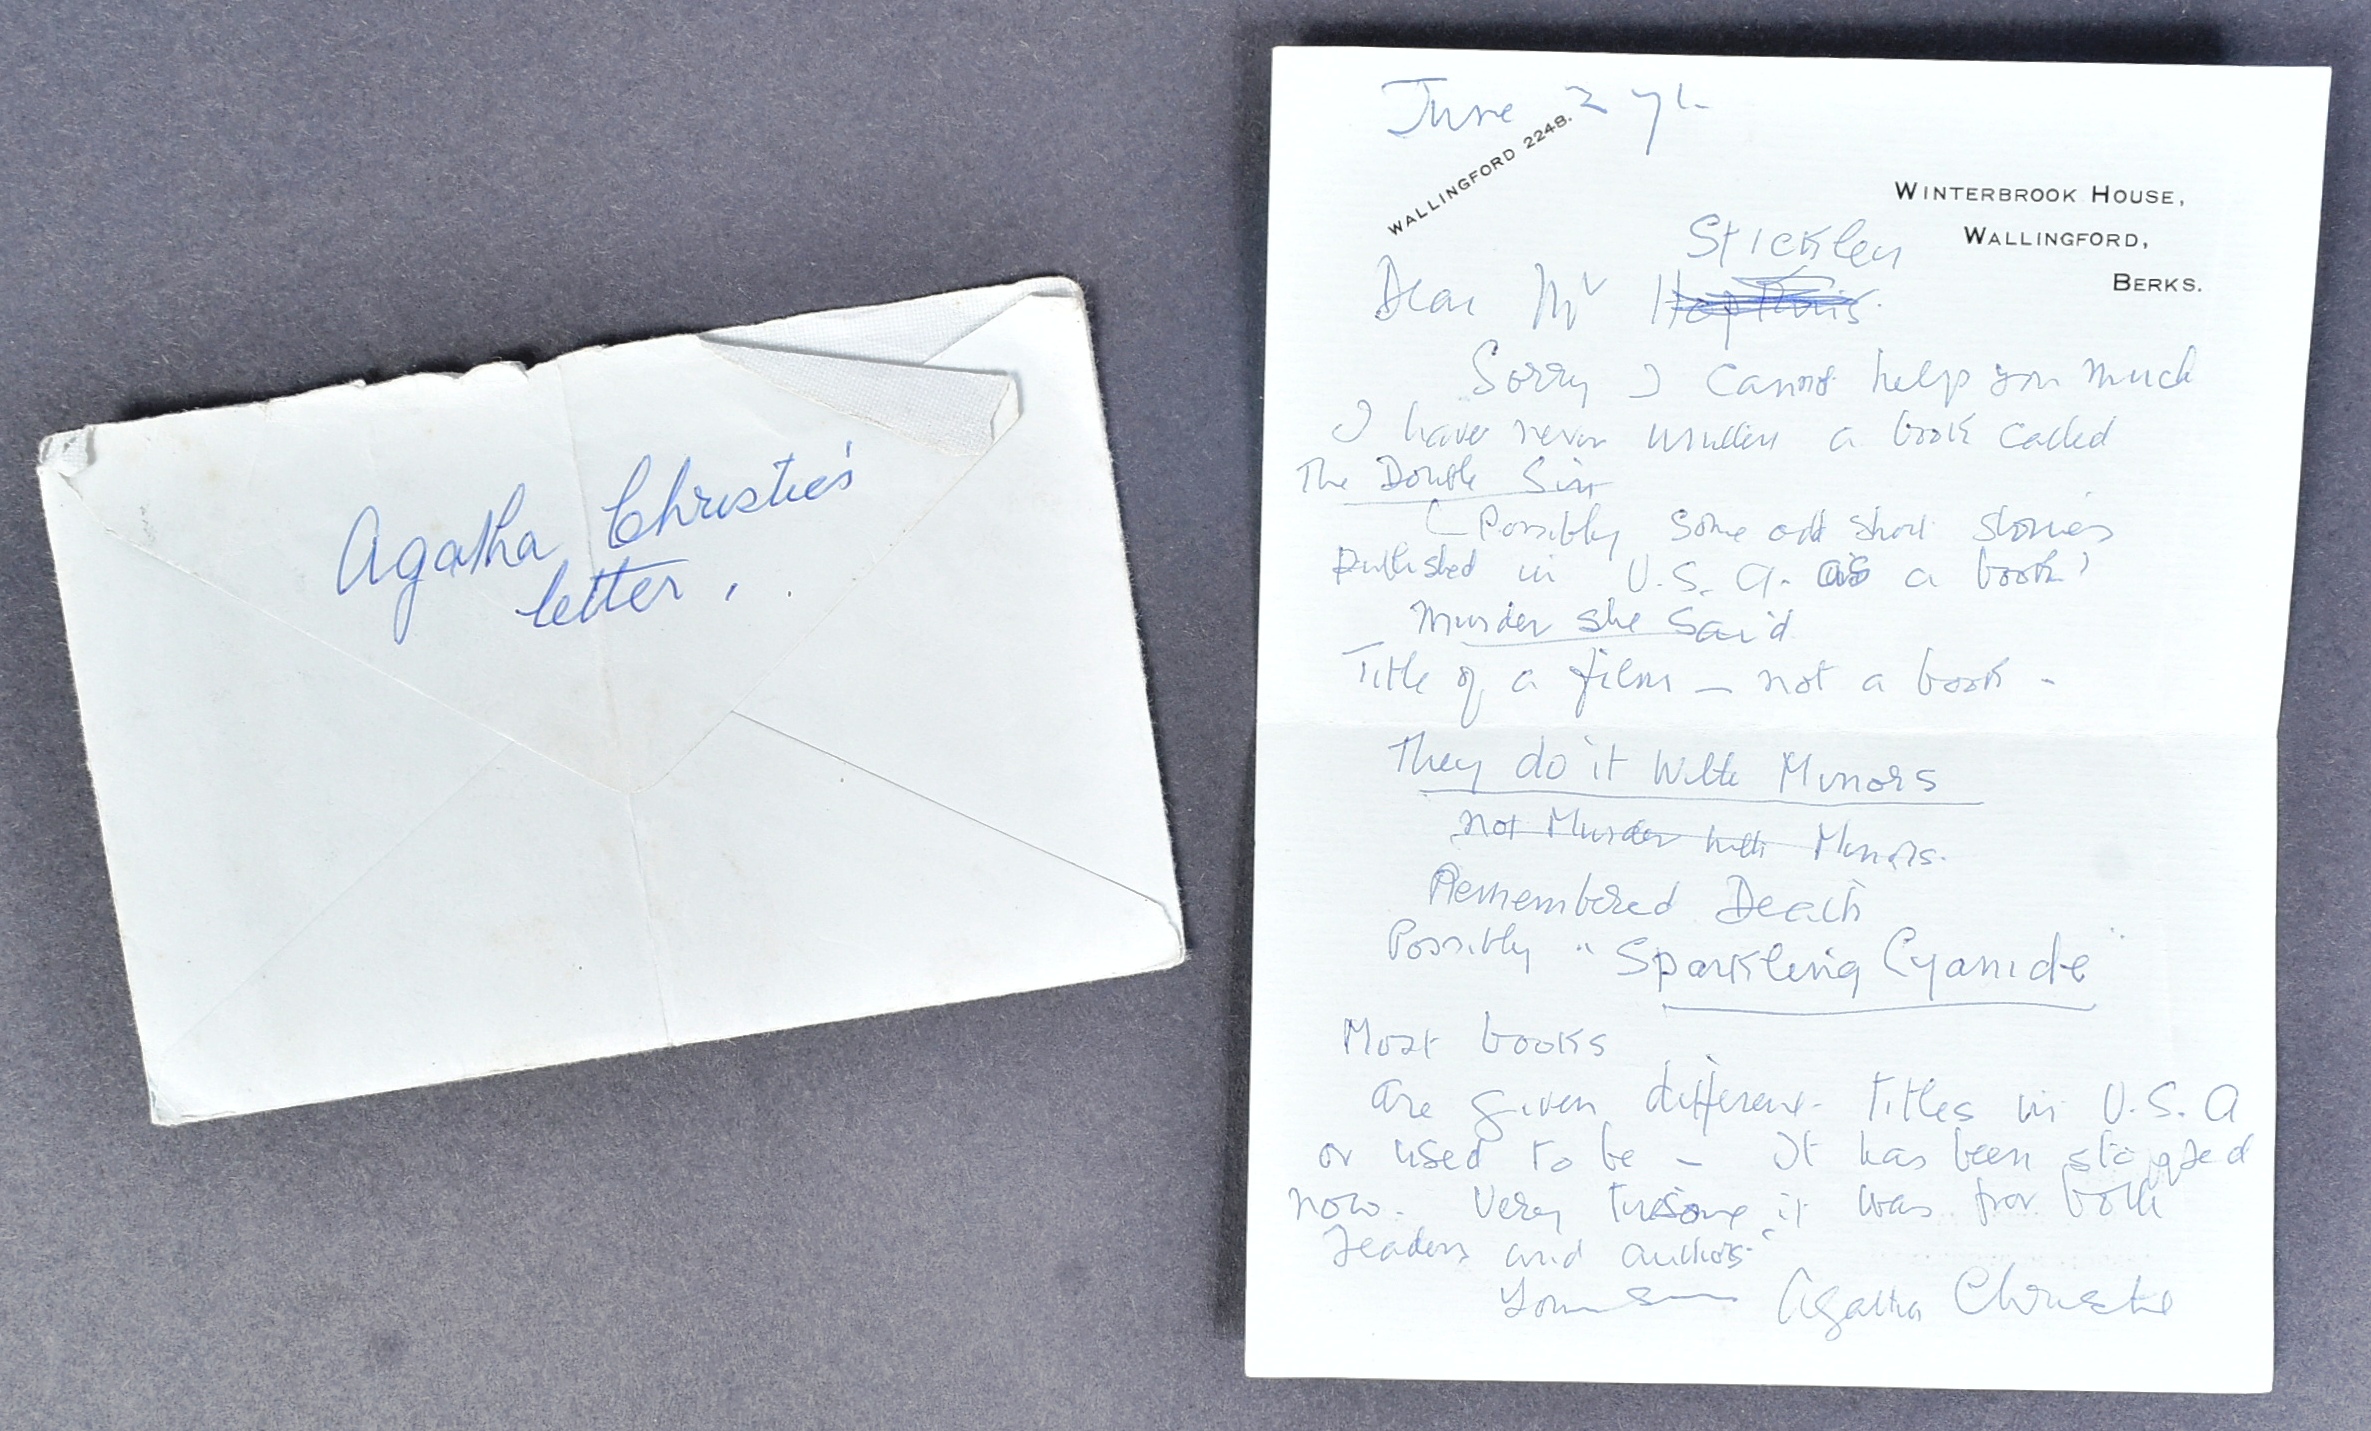 Agatha Christie's
letter.
June 27th
WALLINGFORD 2248.
WINTERBROOK HOUSE,
WALLINGFORD,
BERKS.
Stickley
Dear Mr Hopkins
Sorry I cannot help you much
I have never written a book called
The Double Sin
(Possibly some odd short stories
published in U.S.A. as a book)
Murder she Said
Title of a film – not a book –
They do it with Mirrors
not Murder with Mirrors.
Remembered Death
Possibly "Sparkling Cyanide"
Most books
are given different titles in U.S.A
or used to be – It has been stopped
now. Very tiresome it was for both
readers and authors.
Yours Agatha Christie